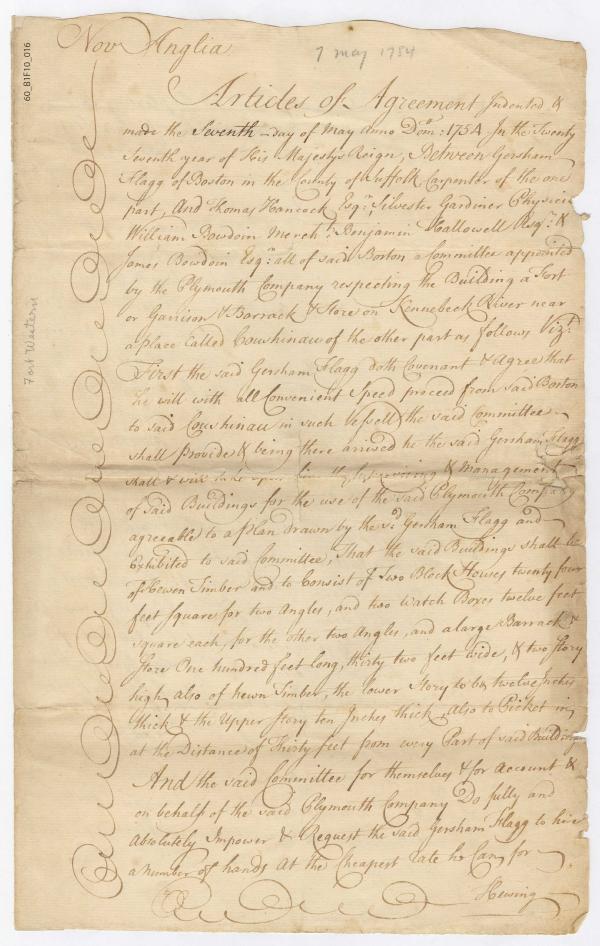 60_B1F10_016
Nov Anglia
7 may 1754
Articles of Agreement Indented &
made the Seventh day of May anno Dom: 1754 In the Twenty
Seventh year of His Majestys Reign, Between Gersham
Flagg of Boston in the County of Suffolk Carpenter of the one
part, And Thomas Hancock Esqr, Silvester Gardiner Physici
William Bowdoin Mercht. Benjamin Hallowell Esqr. &
James Bowdoin Esqr all of said Boston a Committee appointed
by the Plymouth Company respecting the Building a Fort
or Garrison & Barrack & Store on Kennebeck River near
a place Called Coushinau of the other part as follows Vizt.
First the said Gersham Flagg doth Covenant & Agree that
he will with all Convenient Speed proceed from said Boston
to said Coushinau in such Vessell the said Committee
shall Provide & being there arrived he the said Gersham Flagg
shall & will take upon him the & Management
of said Buildings for the use of the said Plymouth Company
agreeable to a plan drawn by the sd. Gersham Flagg and
Exhibited to said Committee, That the said Buildings shall be
of Hewen Timber and to Consist of Two Block Houses twenty four
feet square for two Angles, and two Watch Boxes twelve feet
square each, for the other two Angles, and a large Barrack &
Store One hundred feet long, thirty two feet wide, & two story
high, also of hewn Timber, the lower Story to be twelve Inches
thick & the Upper story ten Inches thick, also to Picket in
at the Distance of Thirty feet from every Part of said Building
And the said Committee for themselves & for Account &
on behalf of the said Plymouth Company Do fully and
Absolutely Impower & Request the said Gersham Flagg to hire
a number of hands At the Cheapest rate he Can, for
Hewing
Fort Western